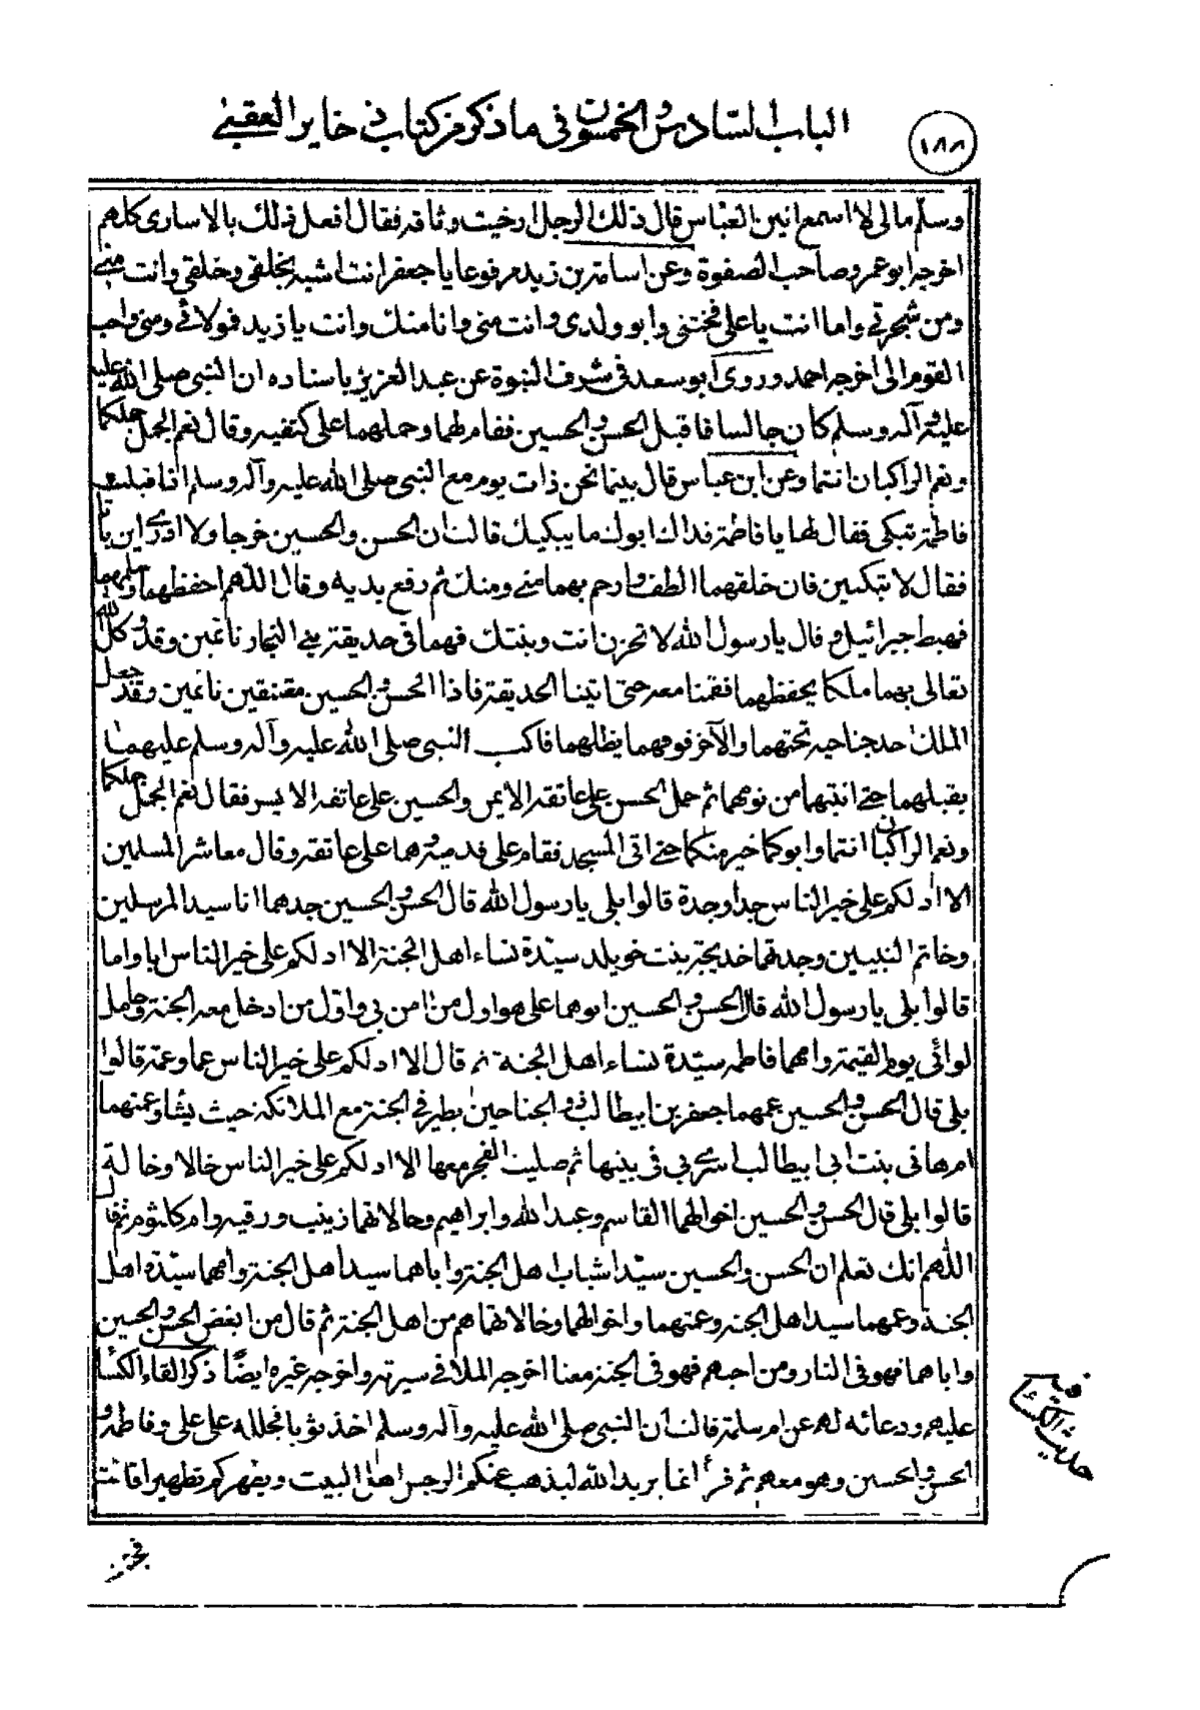 ١٨٨
الباب السّادس والخمسون فى ما ذكر من كتاب ذخاير العقبى
وسلم مالى لا اسمع انين العبّاس قال ذلك الرجل ارخيت وثاقه فقال افعل ذلك بالاسارى كلهم
اخرجه ابو عمر وصاحب الصفوة وعن اسامة بن زيد مرفوعا يا جعفر انت اشبه بخلقى وخلقى وانت منى
ومن شجرتى واما انت يا على فختنى وابو ولدى وانت منى وانا منك وانت يا زيد فمولائى ومنى واحب
القوم الى اخرجه احمد وروى ابو سعد فى شرف النبوة عن عبد العزيز باسناده ان النبى صلى الله عليه
عليه وآله وسلم كان جالسا فاقبل الحسن والحسين فقام لهما وحملهما على كتفيه وقال نعم الجمل جملكما
ونعم الراكبان انتما وعن ابن عباس قال بينما نحن ذات يوم مع النبى صلى الله عليه وآله وسلم اذ اقبلت
فاطمة تبكى فقال لها يا فاطمة فداك ابوك ما يبكيك قالت ان الحسن والحسين خرجا ولا ادرى اين باتا
فقال لا تبكين فان خلقهما الطف وارحم بهما منى ومنك ثم رفع يديه وقال اللهم احفظهما وسلمهما
فهبط جبرائيل وقال يا رسول الله لا تحزن انت وبنتك فهما فى حديقة بنى النجار نائمين وقد وكل الله
تعالى بهما ملكا يحفظهما فقمنا معه حتى اتينا الحديقة فاذا الحسن والحسين معتنقين نائمين وقد جعل
الملك احد جناحيه تحتهما والآخر فوقهما يظلهما فاكب النبى صلى الله عليه وآله وسلم عليهما
يقبلهما حتى انتبها من نومهما ثم حمل الحسن على عاتقه الايمن والحسين على عاتقه الايسر فقال نعم الجمل جملكما
ونعم الراكبان انتما وابوكما خير منكما حتى اتى المسجد فقام على قدميه وهما على عاتقه وقال معاشر المسلمين
الا ادلكم على خير الناس جدا وجدة قالوا بلى يا رسول الله قال الحسن والحسين جدهما انا سيد المرسلين
وخاتم النبيين وجدتهما خديجة بنت خويلد سيّدة نساء اهل الجنة الا ادلكم على خير الناس ابا واما
قالوا بلى يا رسول الله قال الحسن والحسين ابوهما على هو اول من امن بى واوّل من ادخل معه الجنة وحامل
لوائى يوم القيمة وامهما فاطمه سيّدة نساء اهل الجنة ثم قال الا ادلكم على خير الناس عما وعمة قالوا
بلى قال الحسن والحسين عمهما جعفر بن ابيطالب ذو الجناحين يطير فى الجنة مع الملائكة حيث يشاء وعمتهما
ام هانى بنت ابى ابيطالب اسرى بى فى بيتها ثم صليت الفجر معها الا ادلكم على خير الناس خالا وخالة
قالوا بلى قال الحسن والحسين اخوالهما القاسم وعبد الله وابراهيم وخالاتهما زينب ورقيه وام كلثوم ثم قال
اللهم انك تعلم ان الحسن والحسين سيّدا شباب اهل الجنة واباهما سيد اهل الجنة وامهما سيّدة اهل
الجنة وعمهما سيد اهل الجنة وعمتهما واخوالهما وخالاتهما هم من اهل الجنة ثم قال من ابغض الحسن والحسين
واباهما فهو فى النار ومن احبهم فهو فى الجنة معنا اخرجه الملا فى سيرته واخرجه غيره ايضًا ذكر القاء الكساء
عليهم ودعائه لهم عن ام سلمة قالت ان النبى صلى الله عليه وآله وسلم اخذ ثوبا فجلله على على وفاطمة و
الحسن والحسين وهو معهم ثم قرأ انما يريد الله ليذهب عنكم الرجس اهل البيت ويطهركم تطهيرا قالت
فيه
حديث الكساء